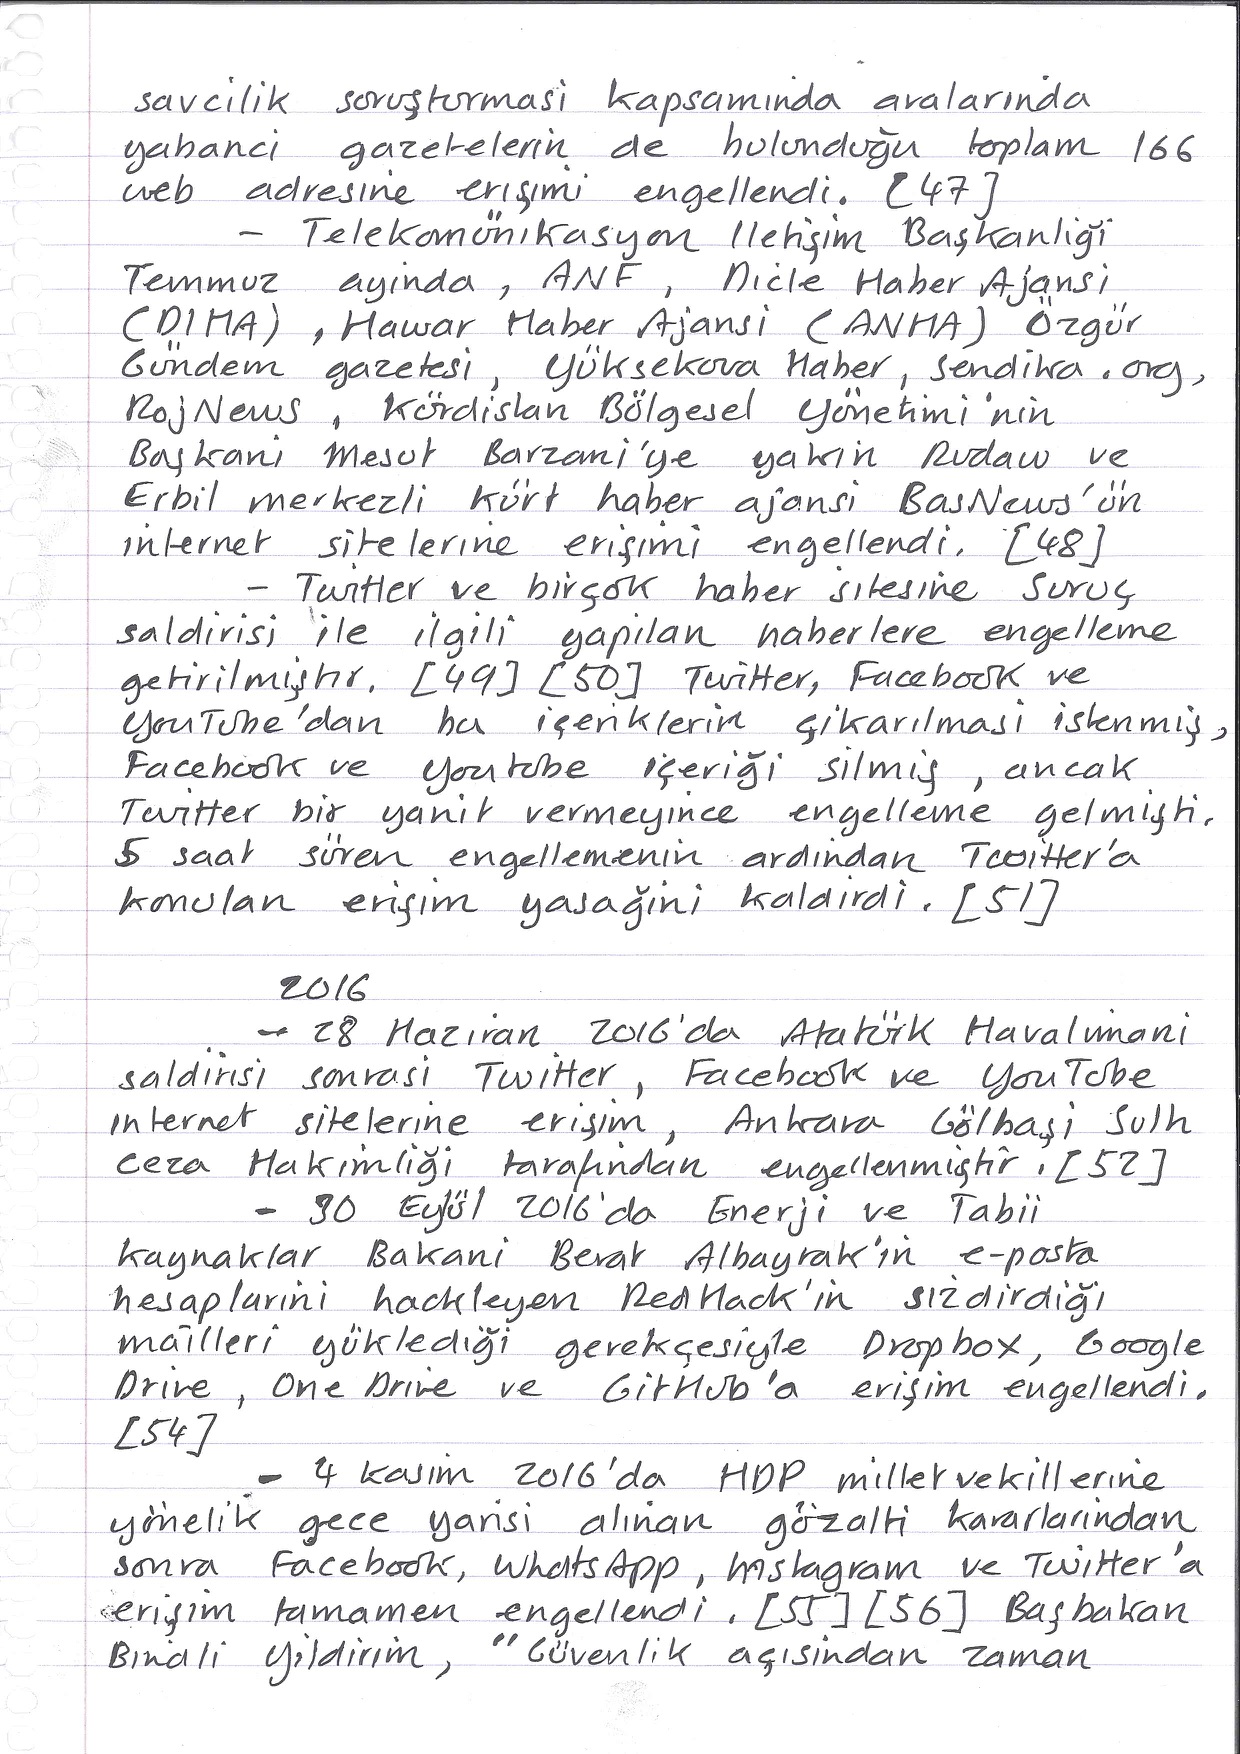 savcilik soruşturmasi kapsamında aralarında
yabanci gazetelerin de bulunduğu toplam 166
web adresine erişimi engellendi. [47]
– Telekomünikasyon Iletişim Başkanliği
Temmuz ayinda, ANF, Dicle Haber Ajansi
(DIHA), Hawar Haber Ajansi (ANHA) Özgür
Gündem gazetesi, Yüksekova Haber, sendika.org,
RojNews, Kürdistan Bölgesel Yönetimi'nin
Başkani Mesut Barzani'ye yakin Rudaw ve
Erbil merkezli kürt haber ajansi BasNews'ün
internet sitelerine erişimi engellendi. [48]
– Twitter ve birçok haber sitesine Suruç
saldirisi ile ilgili yapilan haberlere engelleme
getirilmiştir. [49] [50] Twitter, Facebook ve
YouTube'dan bu içeriklerin çikarılmasi istenmiş,
Facebook ve Youtube içeriği silmiş, ancak
Twitter bir yanit vermeyince engelleme gelmişti.
5 saat süren engellemenin ardindan Twitter'a
konulan erişim yasağini kaldirdi. [51]
2016
– 28 Haziran 2016'da Atatürk Havalimani
saldirisi sonrasi Twitter, Facebook ve YouTube
internet sitelerine erişim, Ankara Gölbaşi Sulh
Ceza Hakimliği tarafindan engellenmiştir. [52]
– 30 Eylül 2016'da Enerji ve Tabii
kaynaklar Bakani Berat Albayrak'in e-posta
hesaplarini hackleyen RedHack'in sizdirdiği
mailleri yüklediği gerekçesiyle Dropbox, Google
Drive, One Drive ve GitHub'a erişim engellendi.
[54]
– 4 kasim 2016'da HDP milletvekillerine
yönelik gece yarisi alinan gözalti kararlarindan
sonra Facebook, WhatsApp, Instagram ve Twitter'a
erişim tamamen engellendi. [55] [56] Başbakan
Binali Yildirim, "Güvenlik açısindan zaman